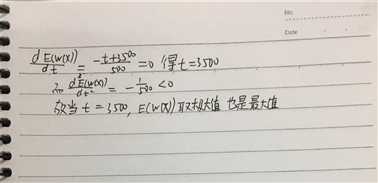 No.
Date
dE(W(X))/dt = (-t+3500)/500 = 0 得 t=3500
而 d²E(W(X))/dt² = -1/500 < 0
故当 t = 3500, E(W(X)) 取极大值 也是最大值